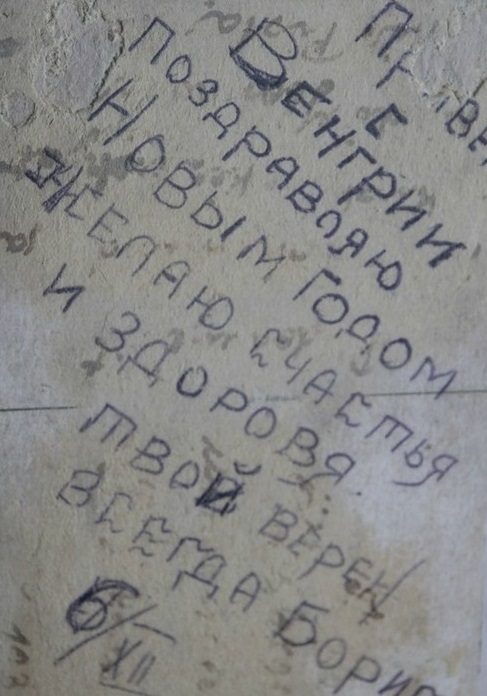 С
ВЕНГРИИ
ПОЗДРАВЛЯЮ
НОВЫМ ГОДОМ
ЖЕЛАЮ СЧАСТЬЯ
И ЗДОРОВЯ.
ТВОЙ ВЕРЕН
ВСЕГДА БОРИС
6/XII